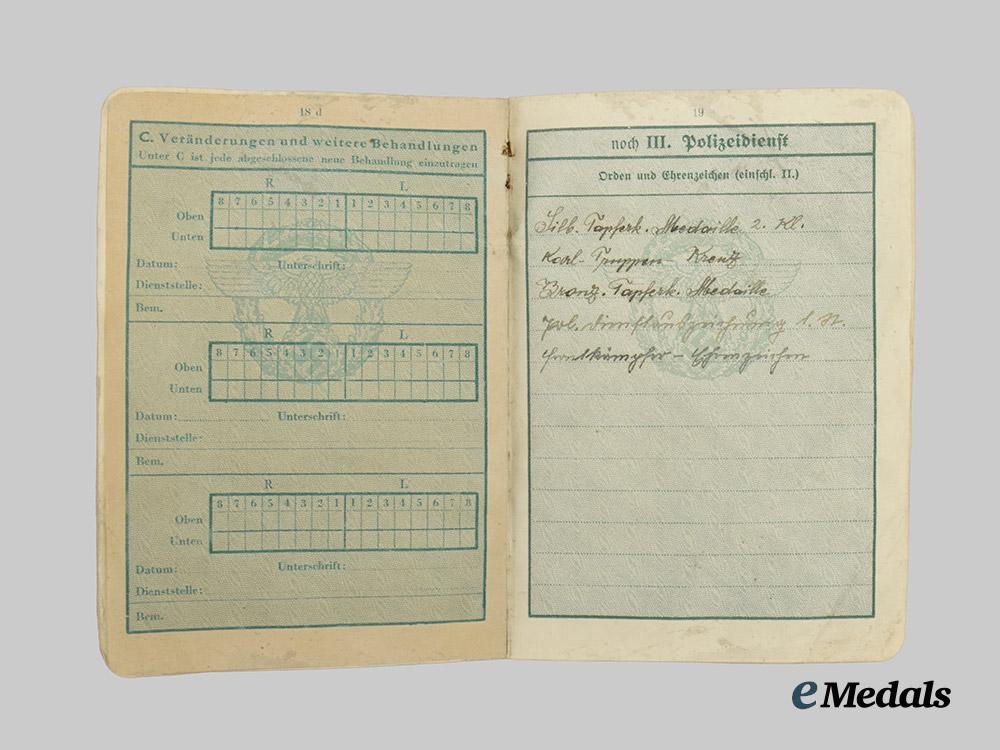 18 d
C. Veränderungen und weitere Behandlungen
Unter C ist jede abgeschlossene neue Behandlung einzutragen
R L
8 7 6 5 4 3 2 1 1 2 3 4 5 6 7 8
Oben
Unten
Datum: Unterschrift:
Dienststelle:
Bem.
R L
8 7 6 5 4 3 2 1 1 2 3 4 5 6 7 8
Oben
Unten
Datum: Unterschrift:
Dienststelle:
Bem.
R L
8 7 6 5 4 3 2 1 1 2 3 4 5 6 7 8
Oben
Unten
Datum: Unterschrift:
Dienststelle:
Bem.
19
noch III. Polizeidienst
Orden und Ehrenzeichen (einschl. II.)
Silb. Tapferk. Medaille 2. Kl.
Karl-Truppen-Kreuz
Bronz. Tapferk. Medaille
Pol. Dienstauszeichnung 1. St.
Frontkämpfer-Ehrenzeichen
eMedals